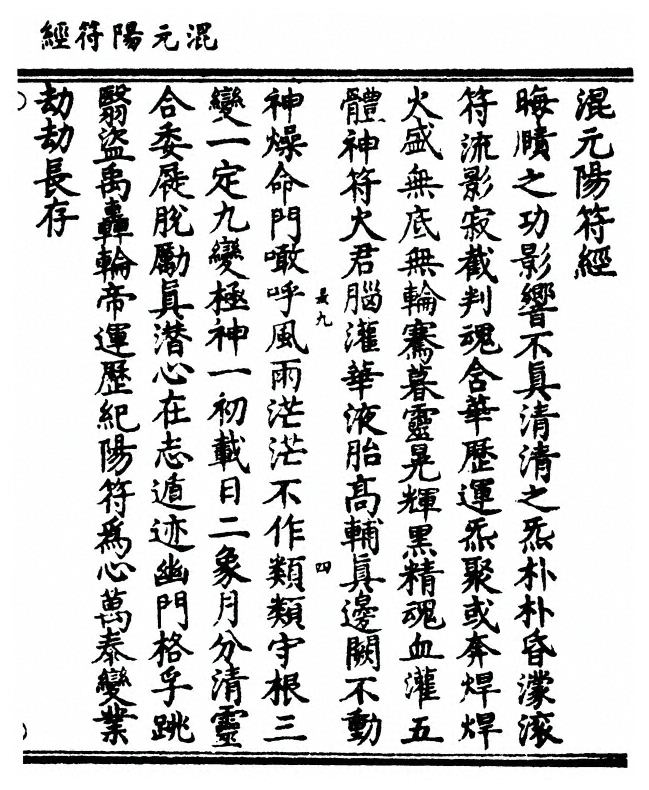 混元陽符經
混元陽符經
晦賾之功影響不眞清清之炁朴朴昏濛滚
符流影寂截判魂含華歷運炁聚或奔焊焊
火盛無底無輪騫暮靈晃輝黒精魂血灌五
體神符火君腦灌華液胎髙輔眞邊闕不動
神燥命門噉呼風雨茫茫不作類類守根三
變一定九變極神一初載日二象月分清靈
合委屣脫厲眞潜心在志遁迹幽門格孚跳
翳盜禹轟輪帝運歷紀陽符爲心萬泰變業
劫劫長存
長九
四